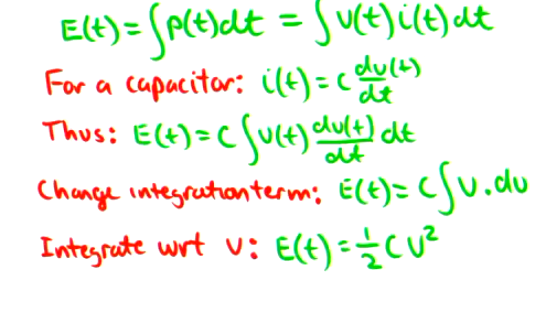 E(t) = ∫p(t)dt = ∫v(t)i(t)dt
For a capacitor: i(t) = c dv(t)/dt
Thus: E(t) = C∫v(t) dv(t)/dt dt
Change integration term: E(t) = C∫v.dv
Integrate wrt v: E(t) = 1/2 CV²